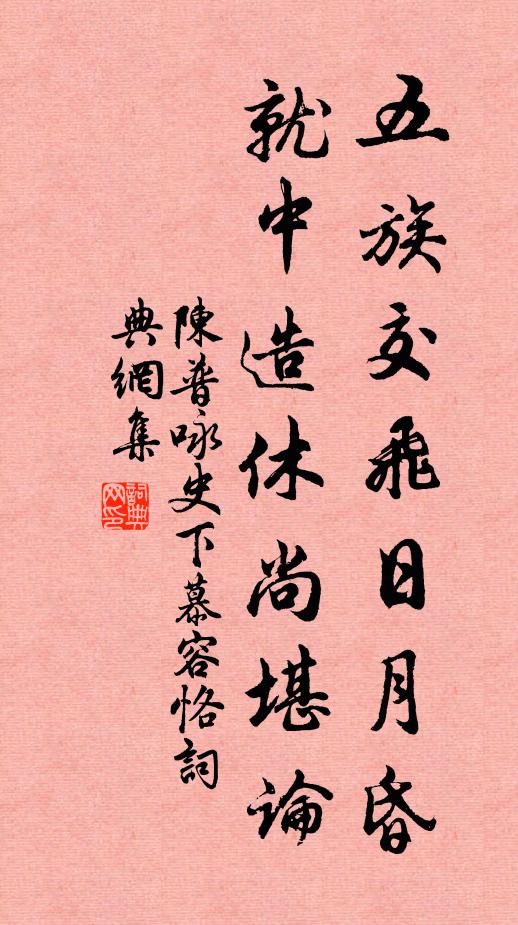 五族交飛日月昏
就中造休尚堪論
陳普咏史下慕容恪詞
典網集
詞典网印